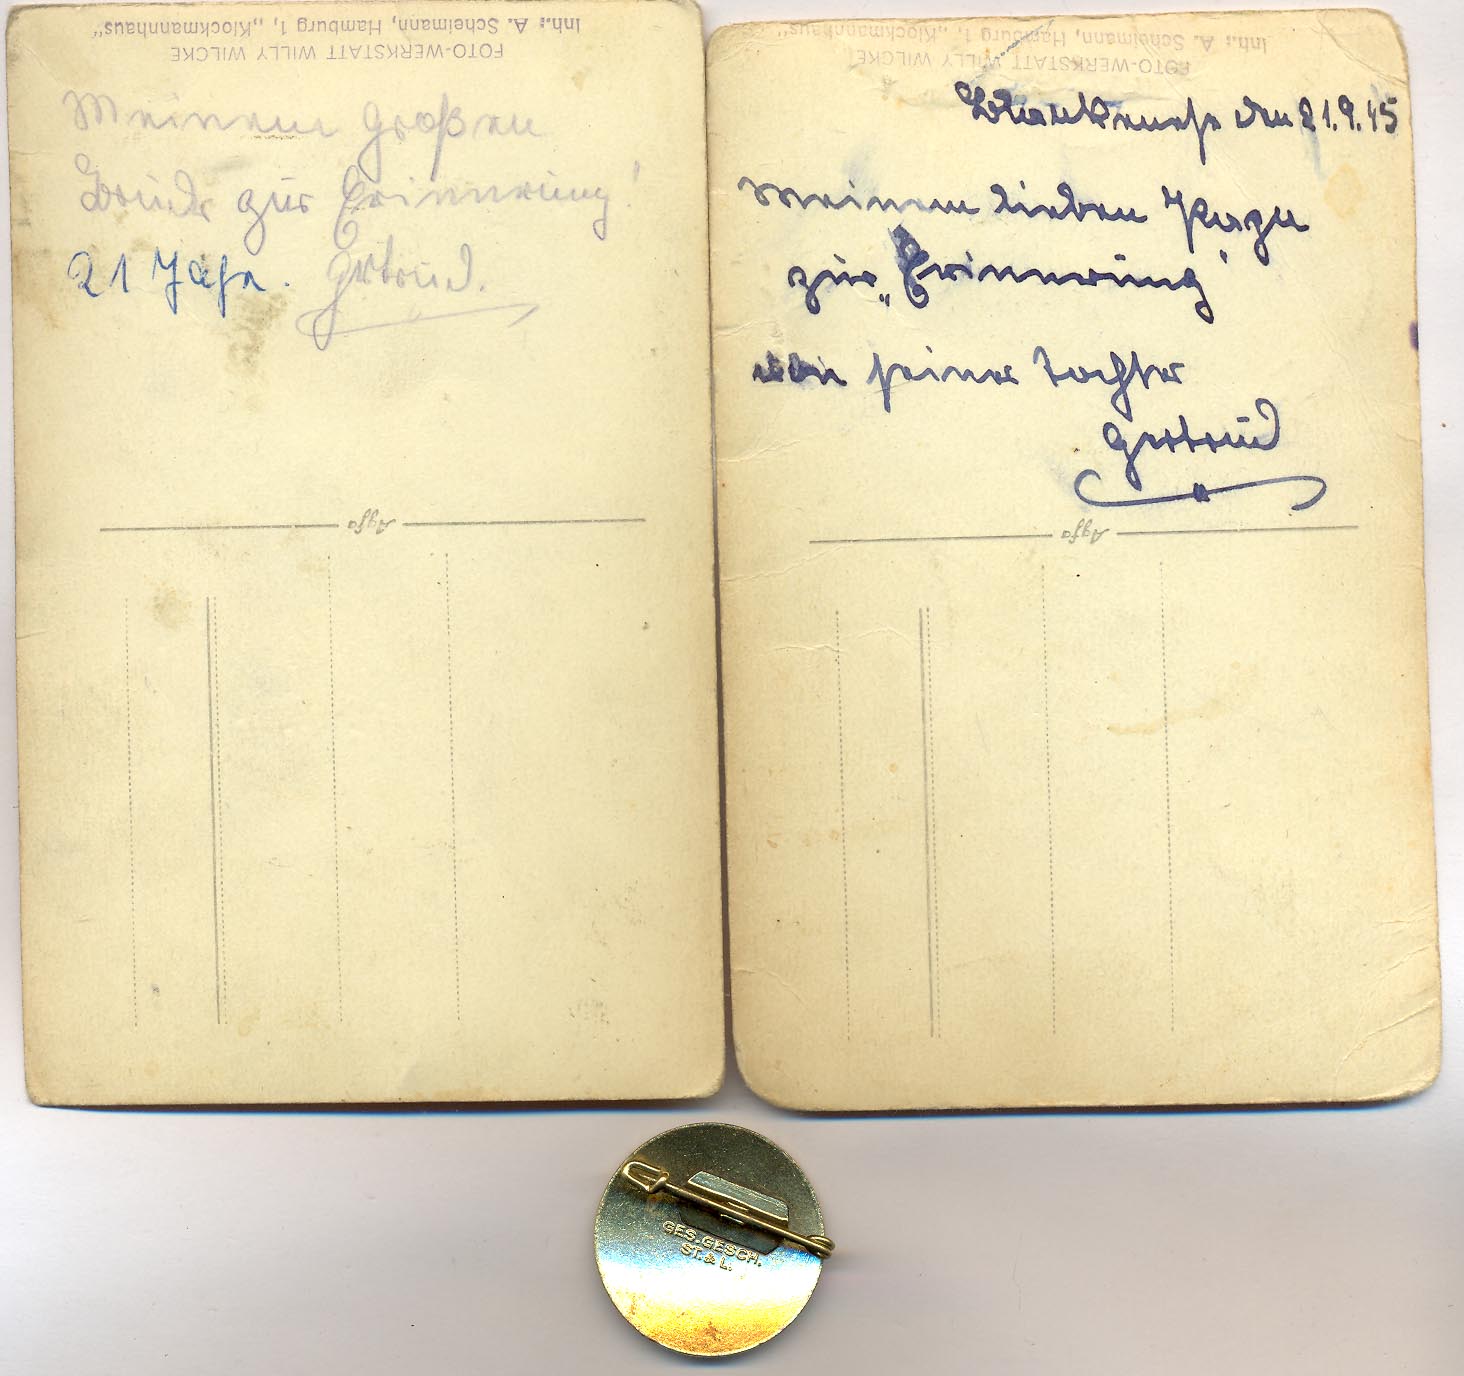 FOTO-WERKSTATT WILLY WILCKE
Inh.: A. Scheimann, Hamburg 1, „Klockmannhaus"
Meinem großen
Bruder zur Erinnerung!
21 Jahr. Gertrud.
Agfa
FOTO-WERKSTATT WILLY WILCKE
Inh.: A. Scheimann, Hamburg 1, „Klockmannhaus"
Blankenese den 21.9.45
Meinem lieben Papa
zur „Erinnerung"
von seiner Tochter
Gertrud
Agfa
GES. GESCH.
ST. & L.